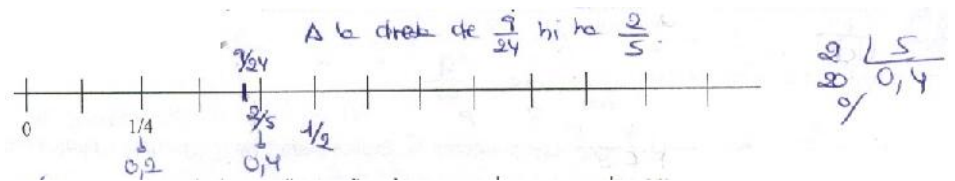 A la dreta de 9/24 hi ha 2/5.
2 | 5
20 0,4
0/
9/24
0 1/4 2/5 1/2
0,2 0,4